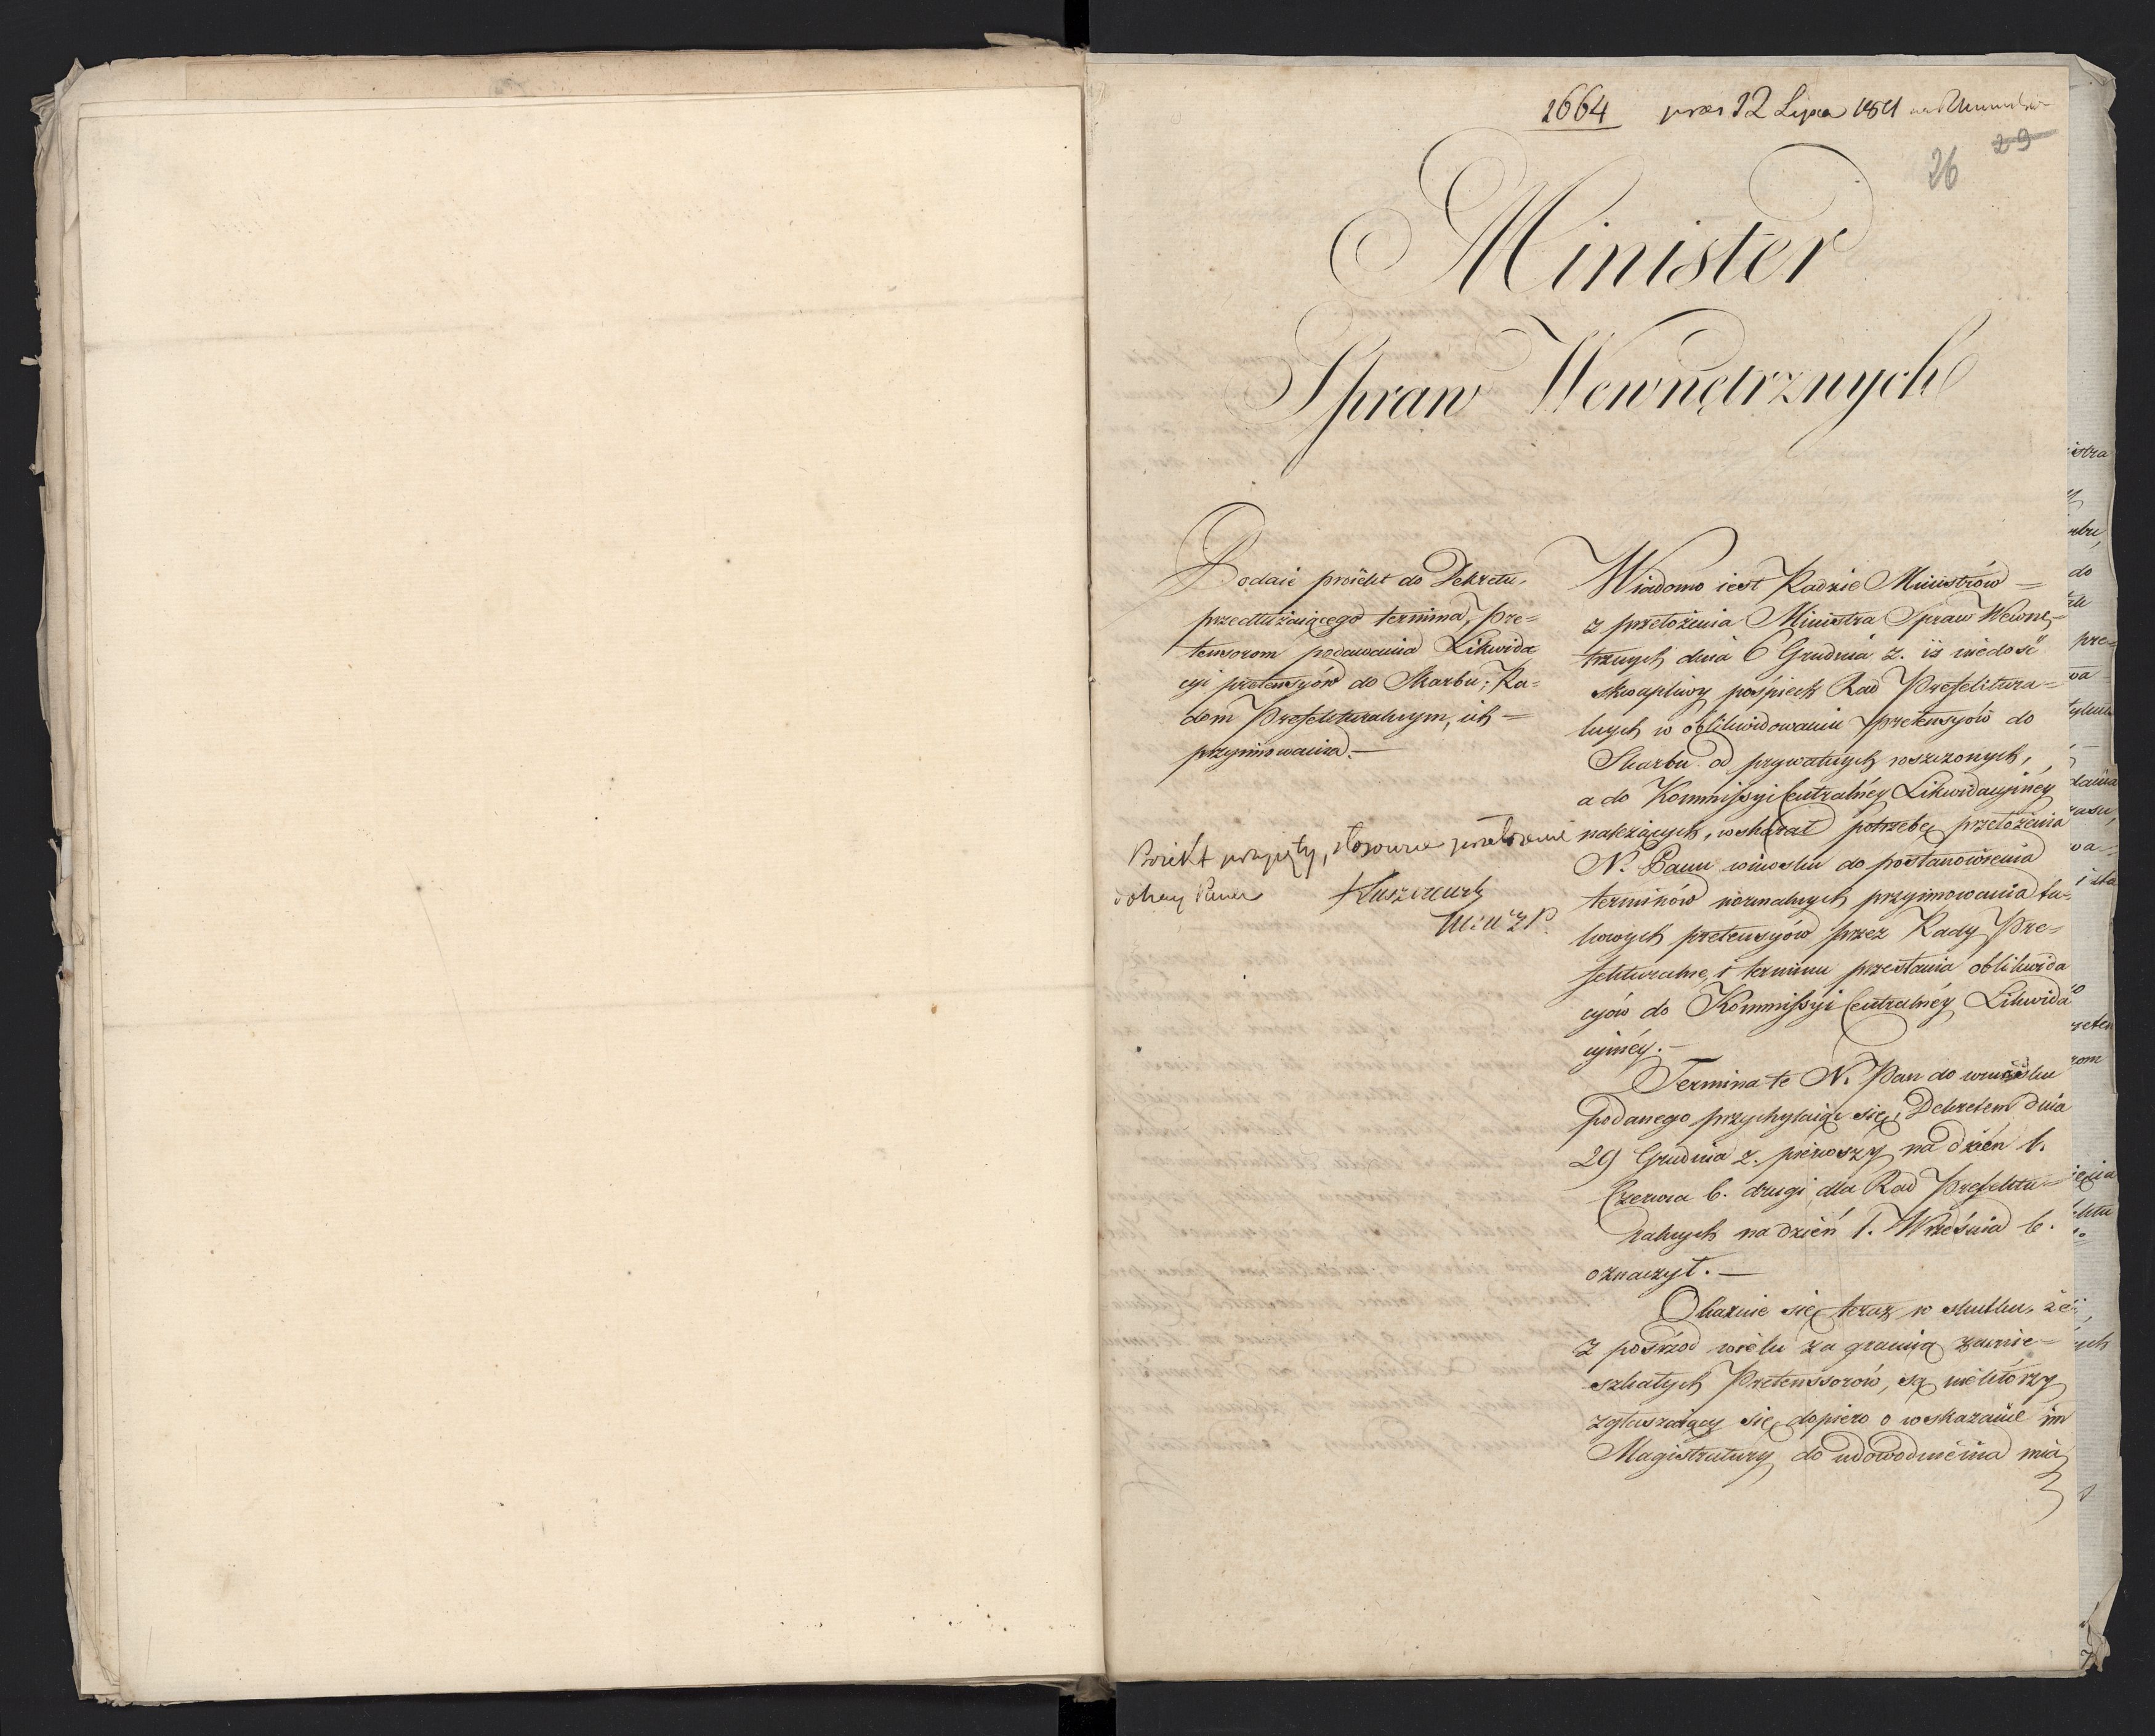 2664 praes 12 Lipca 1811
29
26
Minister
Spraw Wewnętrznych
Podaie proiekt do Dekretu,
przedłużaiącego termina, Pre=
tensorom podawania Likwida
cyi pretensyów do Skarbu; Ra=
dom Prefekturalnym, ich =
przyimowania. —
Proiekt przyięty, stosownie
Kluszewski
Wiadomo iest Radzie Ministrów =
z przełożenia Ministra Spraw Wewnę=
trznych dnia 6 Grudnia z. iż niedość
skwapliwy pośpiech Rad Prefektura=
lnych w oblikwidowaniu pretensyów do
Skarbu od prywatnych roszczonych,
a do Kommissyi Centralnéy Likwidacyinéy
należących, wskazał potrzebę przełożenia
N. Panu wniosku do postanowienia
terminów normalnych przyimowania ta=
kowych pretensyów przez Rady Pre=
fekturalne, i terminu przesłania oblikwida
cyów do Kommissyi Centralnéy Likwida
cyinéy. —
Termina te N. Pan do wniosku
podanego przychylaiąc się, Dekretem dnia
29 Grudnia z. pierwszy na dzień 1.
Czerwca b. drugi dla Rad Prefektu=
ralnych na dzień 1. Września b.
oznaczył. —
Okazuie się teraz w skutku, że
z pośrzod wielu za granicą zamie=
szkałych Pretenssorów, są niektórzy
zgłaszaiący się dopiero o wskazanie im
Magistratury do udowodnienia mia